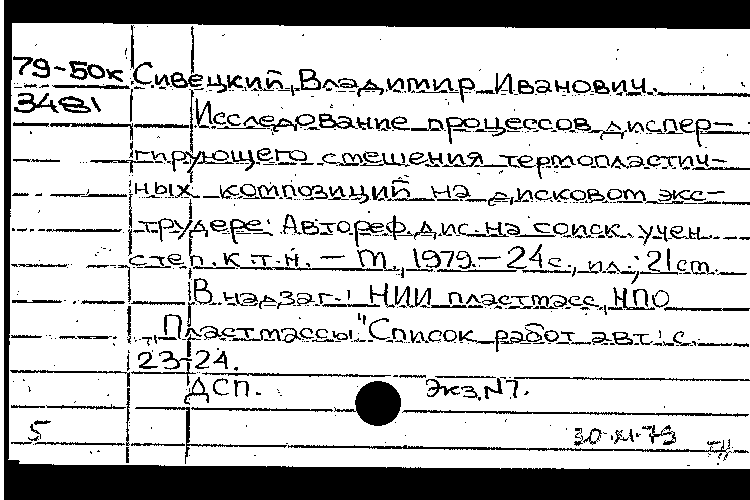 79-50к Сивецкий, Владимир Иванович.
3481 Исследование процессов диспер-
гирующего смешения термопластич-
ных композиций на дисковом экс-
трудере: Автореф. дис. на соиск. учен.
степ. к.т.н. – М., 1979. – 24с., ил.; 21см.
В надзаг.: НИИ пластмасс, НПО
„Пластмассы" Список работ авт.: с.
23-24.
ДСП. Экз. N7.
5 30.XI.79